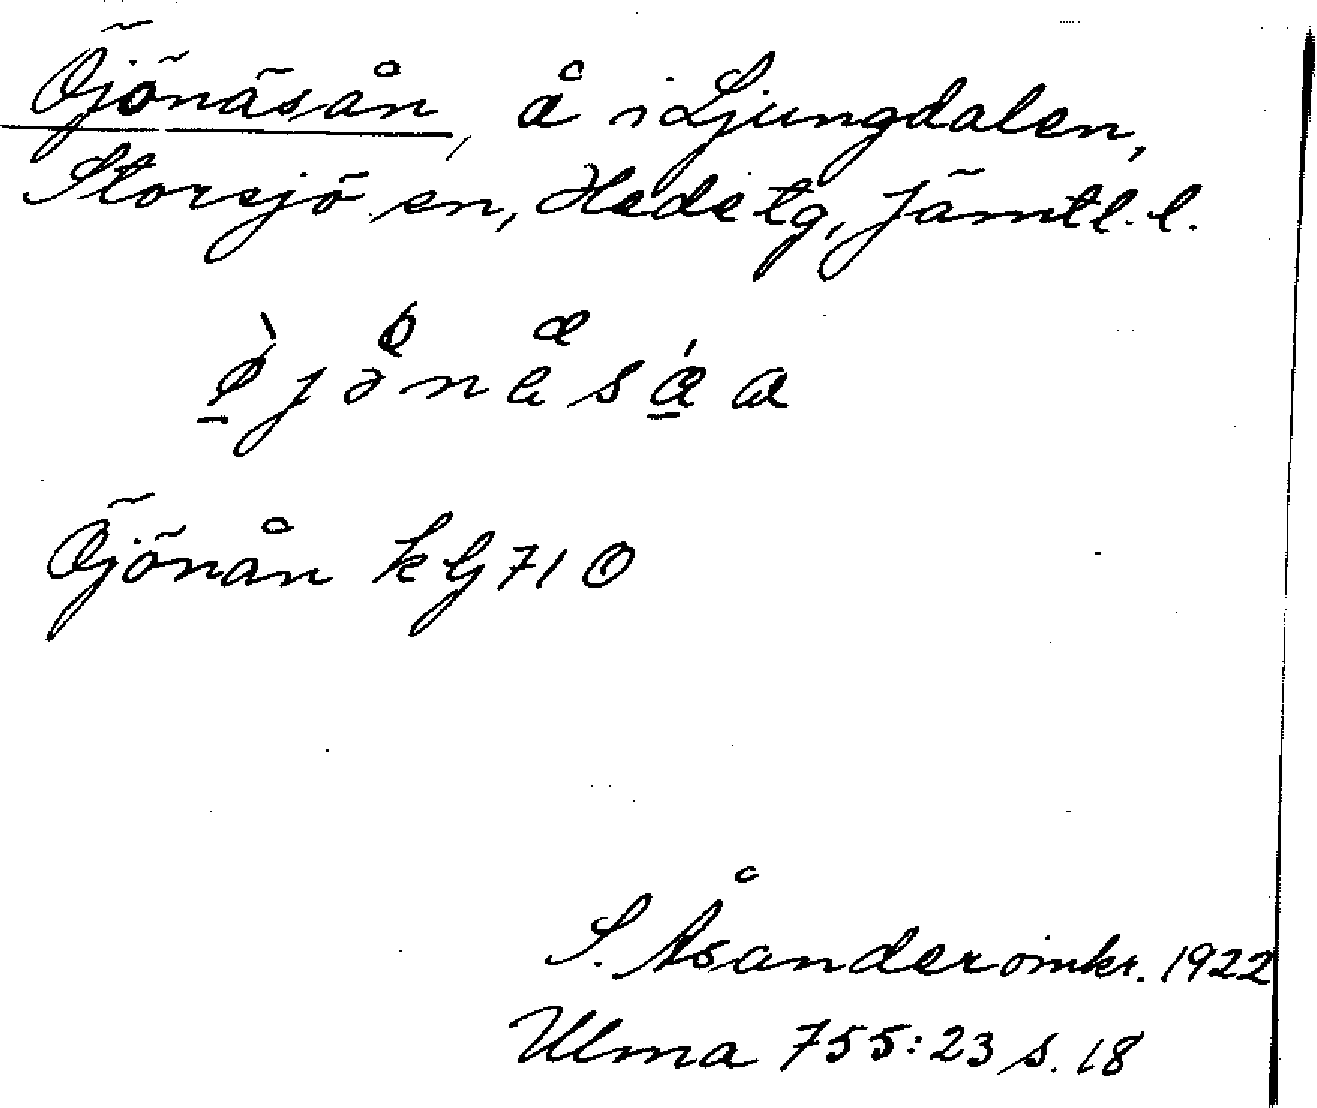 Öjönäsån, å i Ljungdalen,
Storsjö sn, Hede tg, Jämtl. l.
Öjönån kG 71 O
S. Åsander omkr. 1922
Ulma 755:23 s. 18